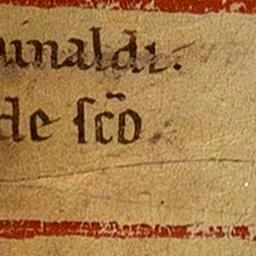 uinaldi.
de sc̃o